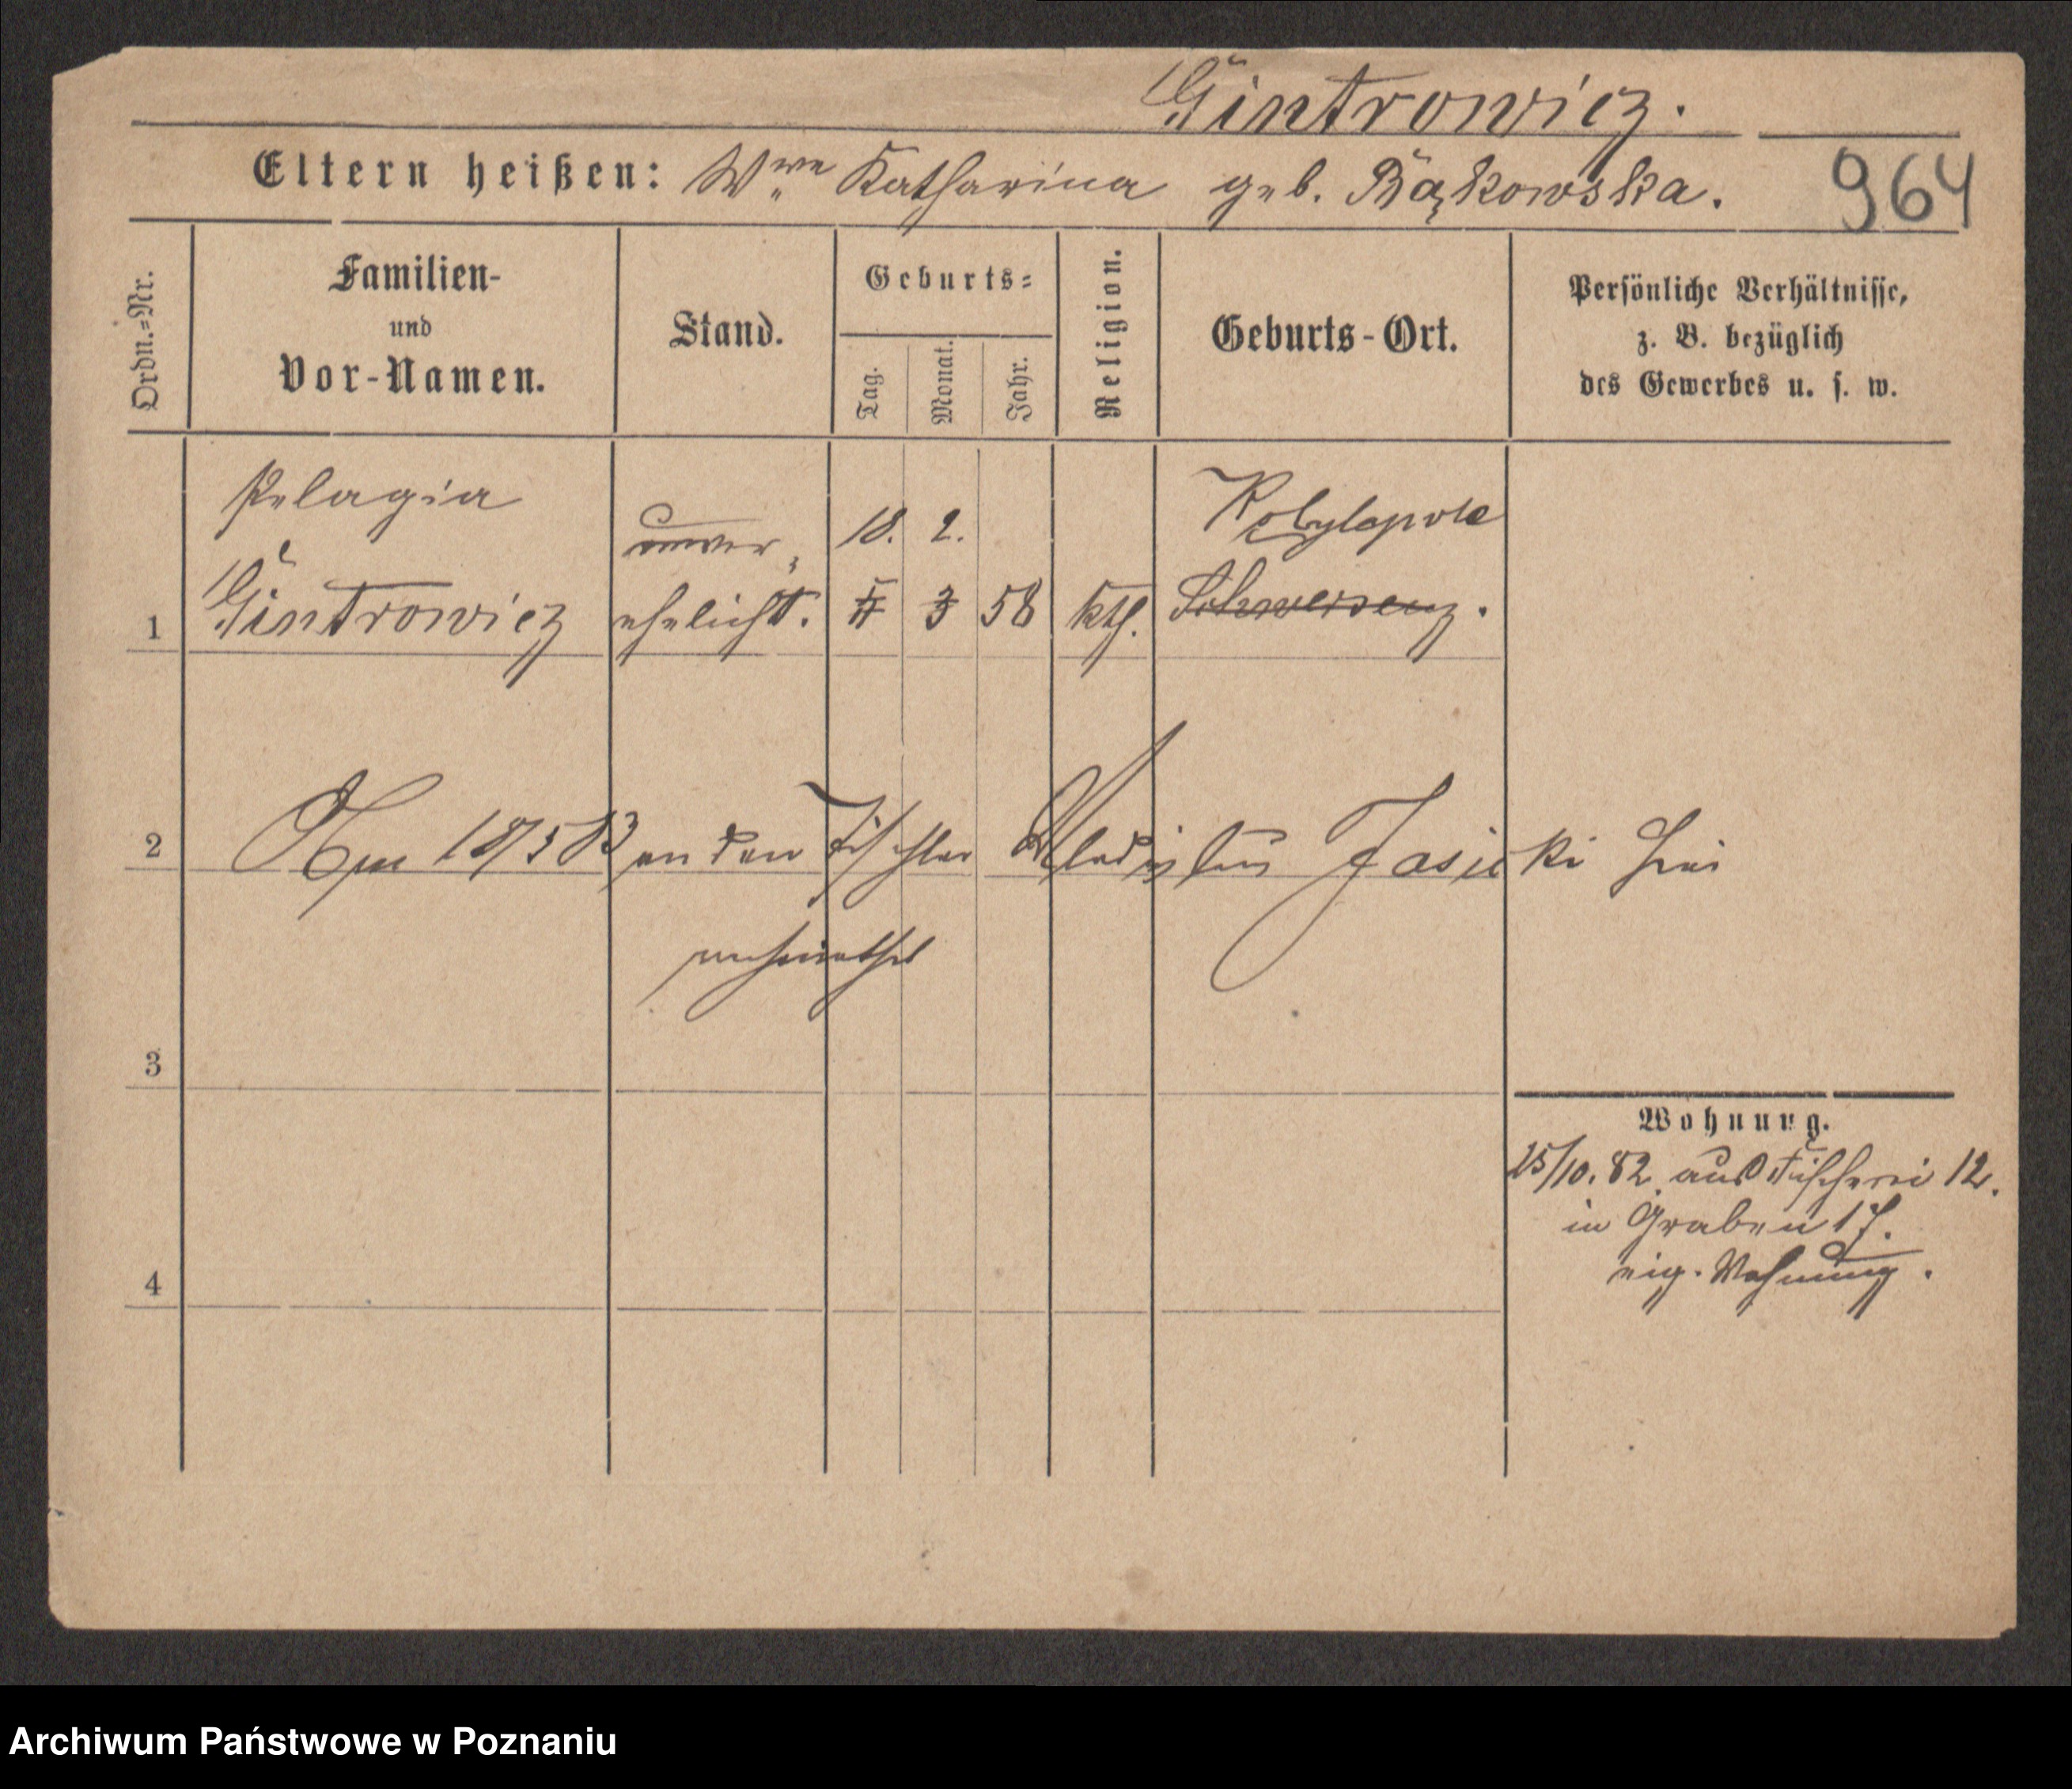 Gintrowicz.
Eltern heißen: Wwe Katharina geb. Bąkowska. 964
Ordn.=Nr.
Familien-
und
Vor-Namen.
Stand.
Geburts=
Tag.
Monat.
Jahr.
Religion.
Geburts-Ort.
Persönliche Verhältnisse,
z. B. bezüglich
des Gewerbes u. s. w.
Pelagia unver 18. 2. Kobylepole
1 Gintrowicz ehelicht. 3 58 kth. Schwersenz.
2 Am 18/5 83 an den Tischler Wladislaus Jasicki hier
verheirathet
3
Wohnung.
25/10. 82 aus Fischerei 12.
in Graben 17.
eig. Wohnung.
4
Archiwum Państwowe w Poznaniu